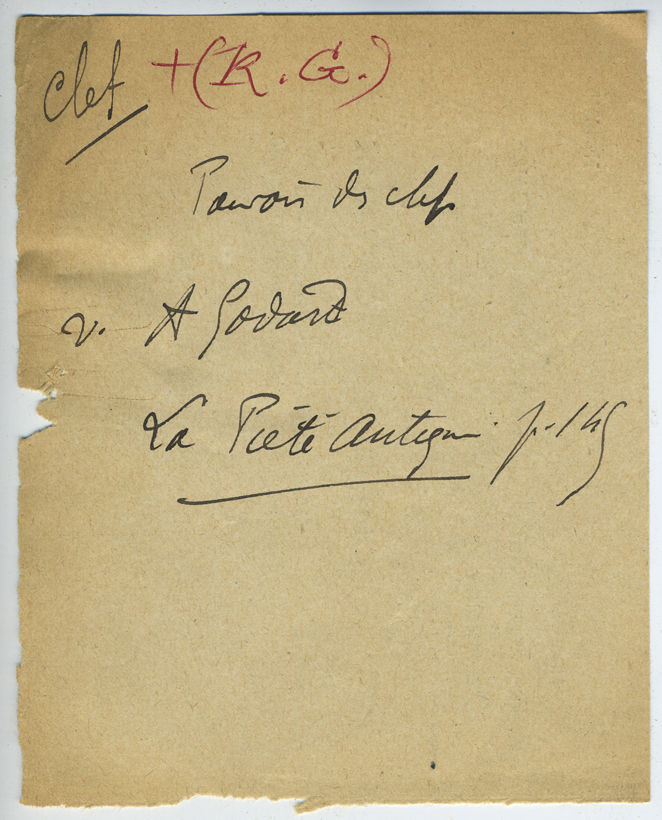 clef +(R. G.)
Pouvoir des clefs
v. A Godard
La Piété Antique p. 145